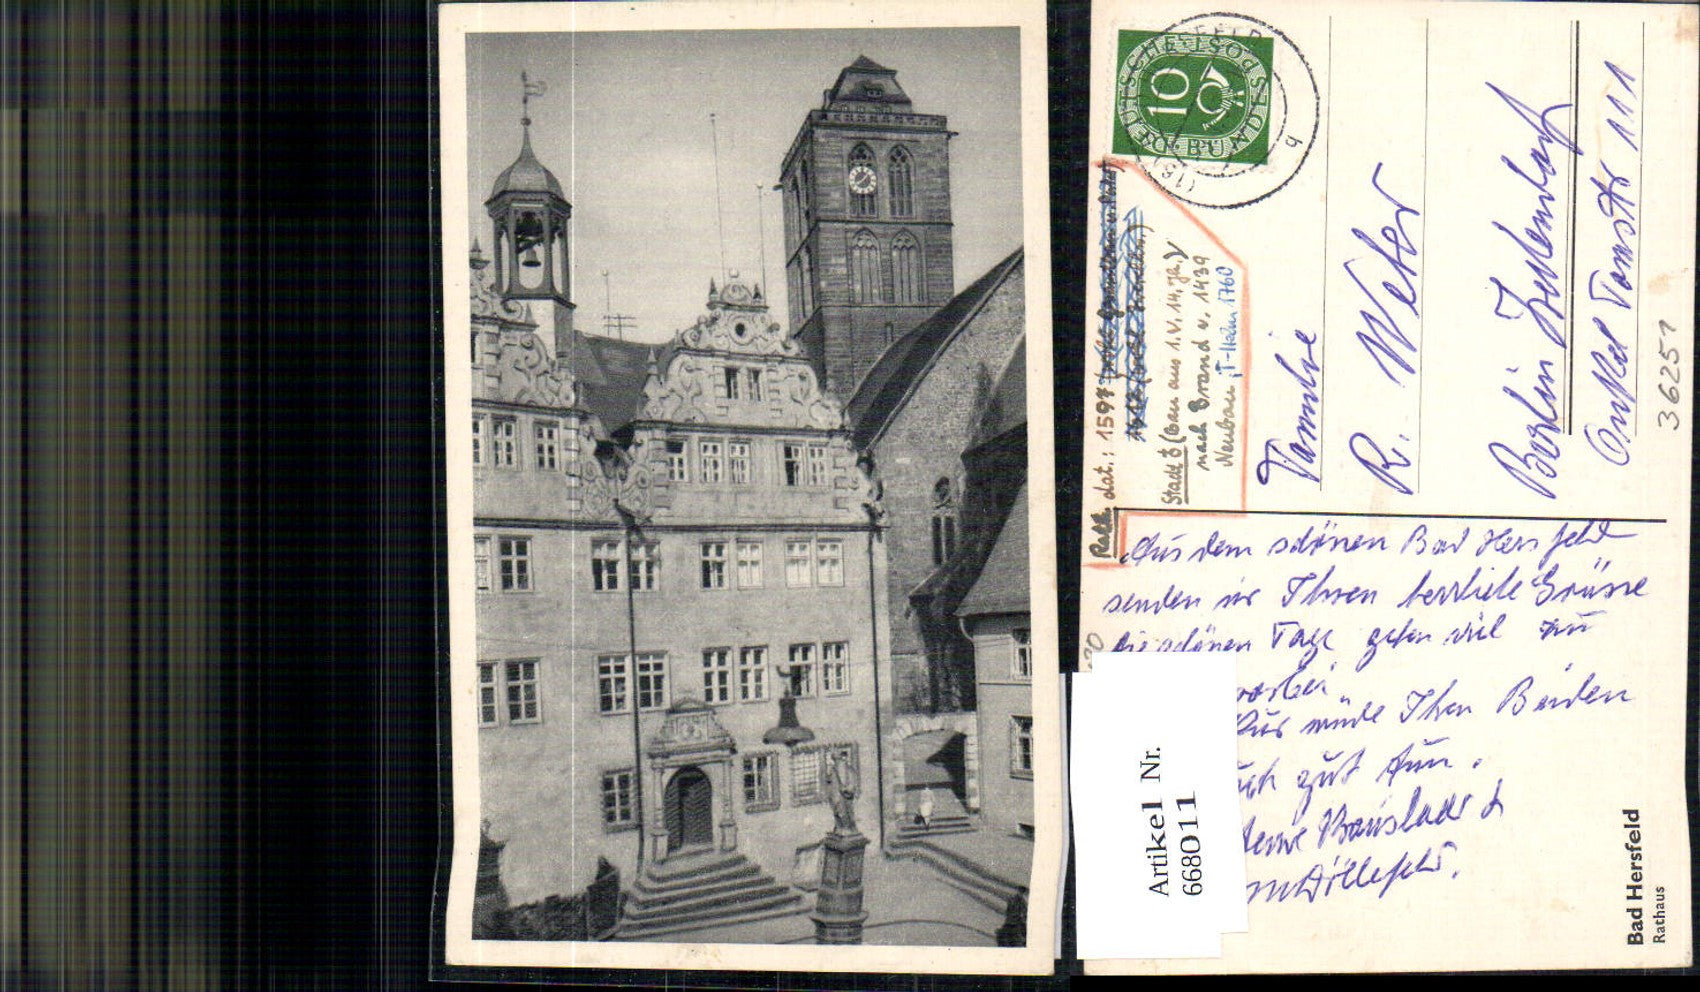 DEUTSCHE BUNDESPOST
10
(16)
b
Rath. dat.: 1597
Stadt (Bau aus 1.V. 14. Jh.)
nach Brand v. 1439
Neubau, T-Helm 1760
Familie
R. Weber
Berlin Zehlendorf
Onkel Tomstr 111
36251
Aus dem schönen Bad Hersfeld
senden wir Ihnen herrliche Grüsse
die schönen Tage gehen viel zu
vorbei
Kur würde Ihnen Beiden
auch gut tun.
Artikel Nr.
668011
Bad Hersfeld
Rathaus